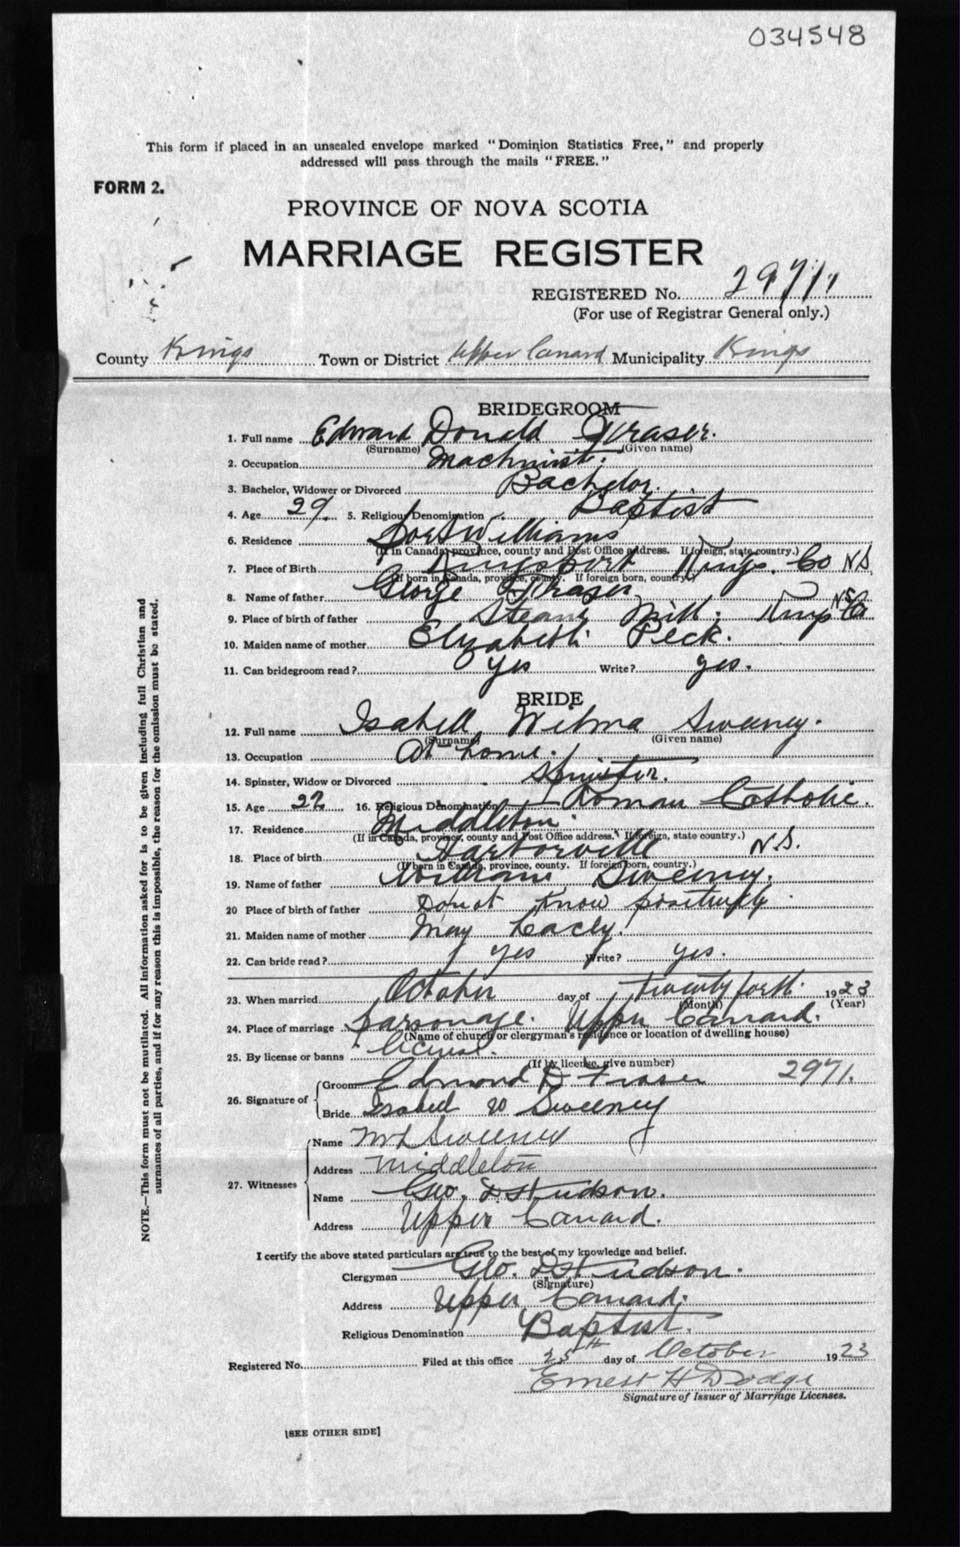 034548
This form if placed in an unsealed envelope marked "Dominion Statistics Free," and properly
addressed will pass through the mails "FREE."
FORM 2.
PROVINCE OF NOVA SCOTIA
MARRIAGE REGISTER
REGISTERED No. 2971
(For use of Registrar General only.)
County Kings Town or District Upper Canard Municipality Kings
BRIDEGROOM
1. Full name Edward Donald Fraser.
(Surname) (Given name)
2. Occupation Machinist.
3. Bachelor, Widower or Divorced Bachelor.
4. Age 29. 5. Religious Denomination Baptist
6. Residence Port Williams
(If in Canada, province, county and Post Office address. If foreign, state country.)
7. Place of Birth Kingsport Kings. Co NS
(If born in Canada, province, county. If foreign born, country.)
8. Name of father George Fraser
9. Place of birth of father Steam Mill. Kings Co NS
10. Maiden name of mother Elizabeth Peck.
11. Can bridegroom read? yes Write? yes.
BRIDE
12. Full name Isabell Wilma Sweeney.
(Surname) (Given name)
13. Occupation At home.
14. Spinster, Widow or Divorced Spinster.
15. Age 22 16. Religious Denomination Roman Catholic.
17. Residence Middleton.
(If in Canada, province, county and Post Office address. If foreign, state country.)
18. Place of birth Harborville N.S.
(If born in Canada, province, county. If foreign born, country.)
19. Name of father William Sweeney.
20 Place of birth of father Donot Know positively
21. Maiden name of mother May Lacey.
22. Can bride read? yes Write? yes.
23. When married October day of twenty forth. 1923
(Month) (Year)
24. Place of marriage parsonage. Upper Canard.
(Name of church or clergyman's residence or location of dwelling house)
25. By license or banns license.
(If by license, give number)
2971.
26. Signature of
Groom Edmond D Fraser
Bride Isabell W Sweeney
27. Witnesses
Name Mrs Sweeney
Address Middleton
Name Geo. D Hudson.
Address Upper Canard.
I certify the above stated particulars are true to the best of my knowledge and belief.
Clergyman Geo. D Hudson.
(Signature)
Address Upper Canard.
Religious Denomination Baptist.
Registered No. Filed at this office 25th day of October 1923
Ernest H Dodge
Signature of Issuer of Marriage Licenses.
[SEE OTHER SIDE]
NOTE.—This form must not be mutilated. All information asked for is to be given including full Christian and
surnames of all parties, and if for any reason this is impossible, the reason for the omission must be stated.